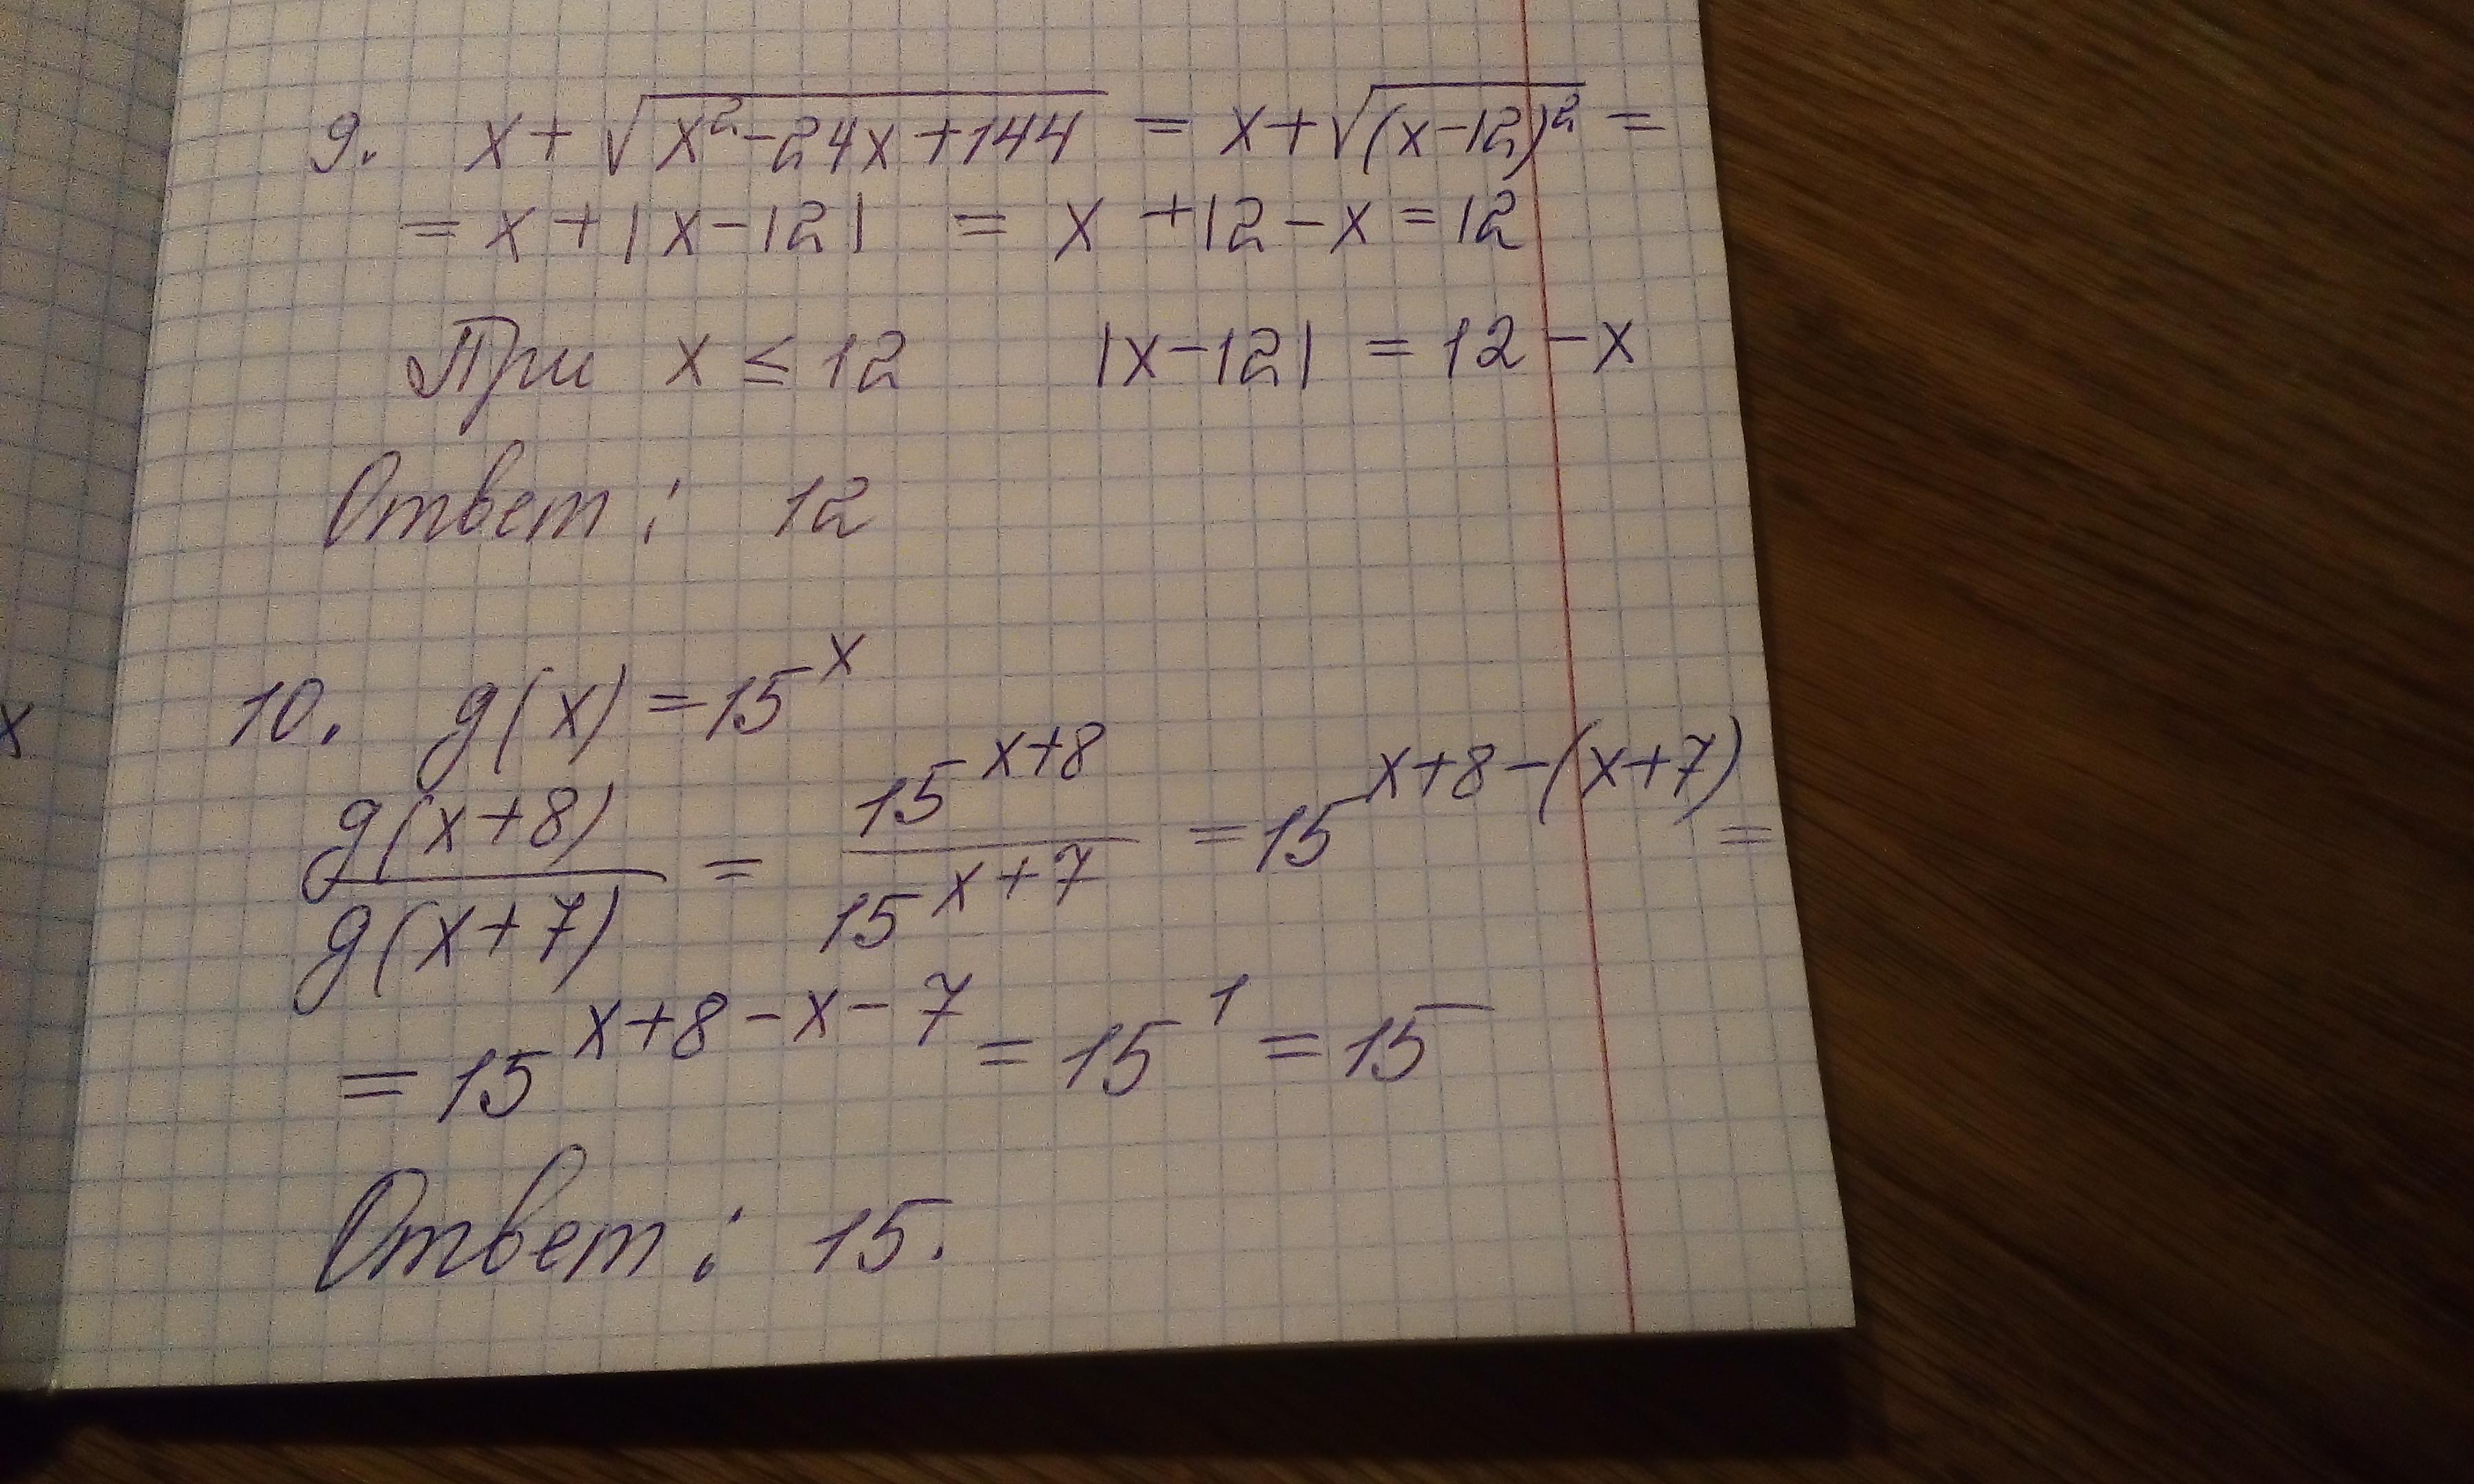 9. x + √(x² - 24x + 144) = x + √((x - 12)²) =
= x + |x - 12| = x + 12 - x = 12
При x ≤ 12 |x - 12| = 12 - x
Ответ: 12
10. g(x) = 15^x
g(x+8)/g(x+7) = 15^(x+8)/15^(x+7) = 15^(x+8-(x+7)) =
= 15^(x+8-x-7) = 15^1 = 15
Ответ: 15.
x